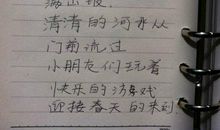 满山坡.
清清的河水从
门前流过
小朋友们玩着
快乐的游戏
迎接春天的来到.